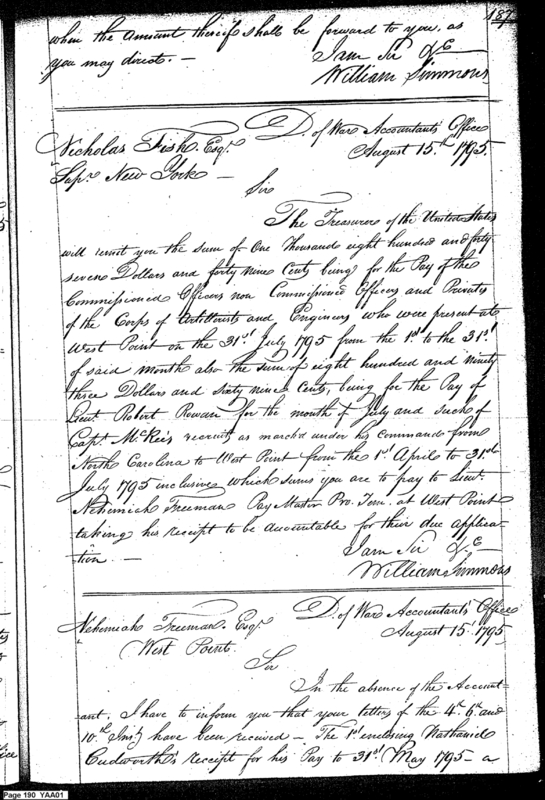 187
when the amount thereof shall be forward to you, as
you may direct. —
I am Sir &c
William Simmons
D. of War Accountants Office
August 15th 1795.
Nicholas Fish Esqr.
Supr. New York —
Sir
The Treasurer of the United States
will remit you the sum of One Thousand eight hundred and forty
seven Dollars and forty nine Cents being for the Pay of the
Commissioned Officers non Commissioned Officers and Privates
of the Corps of Artillerists and Engineers who were present at
West Point on the 31st July 1795 from the 1st to the 31st
of said month also the sum of eight hundred and ninety
three Dollars and sixty nine Cents, being for the Pay of
Lieut. Robert Rowan for the month of July and such of
Capt. McRee's recruits as march'd under his command from
North Carolina to West Point from the 1st April to 31st
July 1795 inclusive which sums you are to pay to Lieut.
Nehemiah Freeman Pay Master Pro. Tem. at West Point
taking his receipt to be accountable for their due applica-
tion. —
I am Sir &c
William Simmons
D. of War Accountants Office
August 15t 1795
Nehemiah Freeman Esqr.
West Point.
Sir
In the absence of the Account-
ant, I have to inform you that your letters of the 4th 6th and
10th Inst have been received — The 1st enclosing Nathaniel
Cudworth's receipt for his Pay to 31st May 1795 — a
Page 190 YAA01